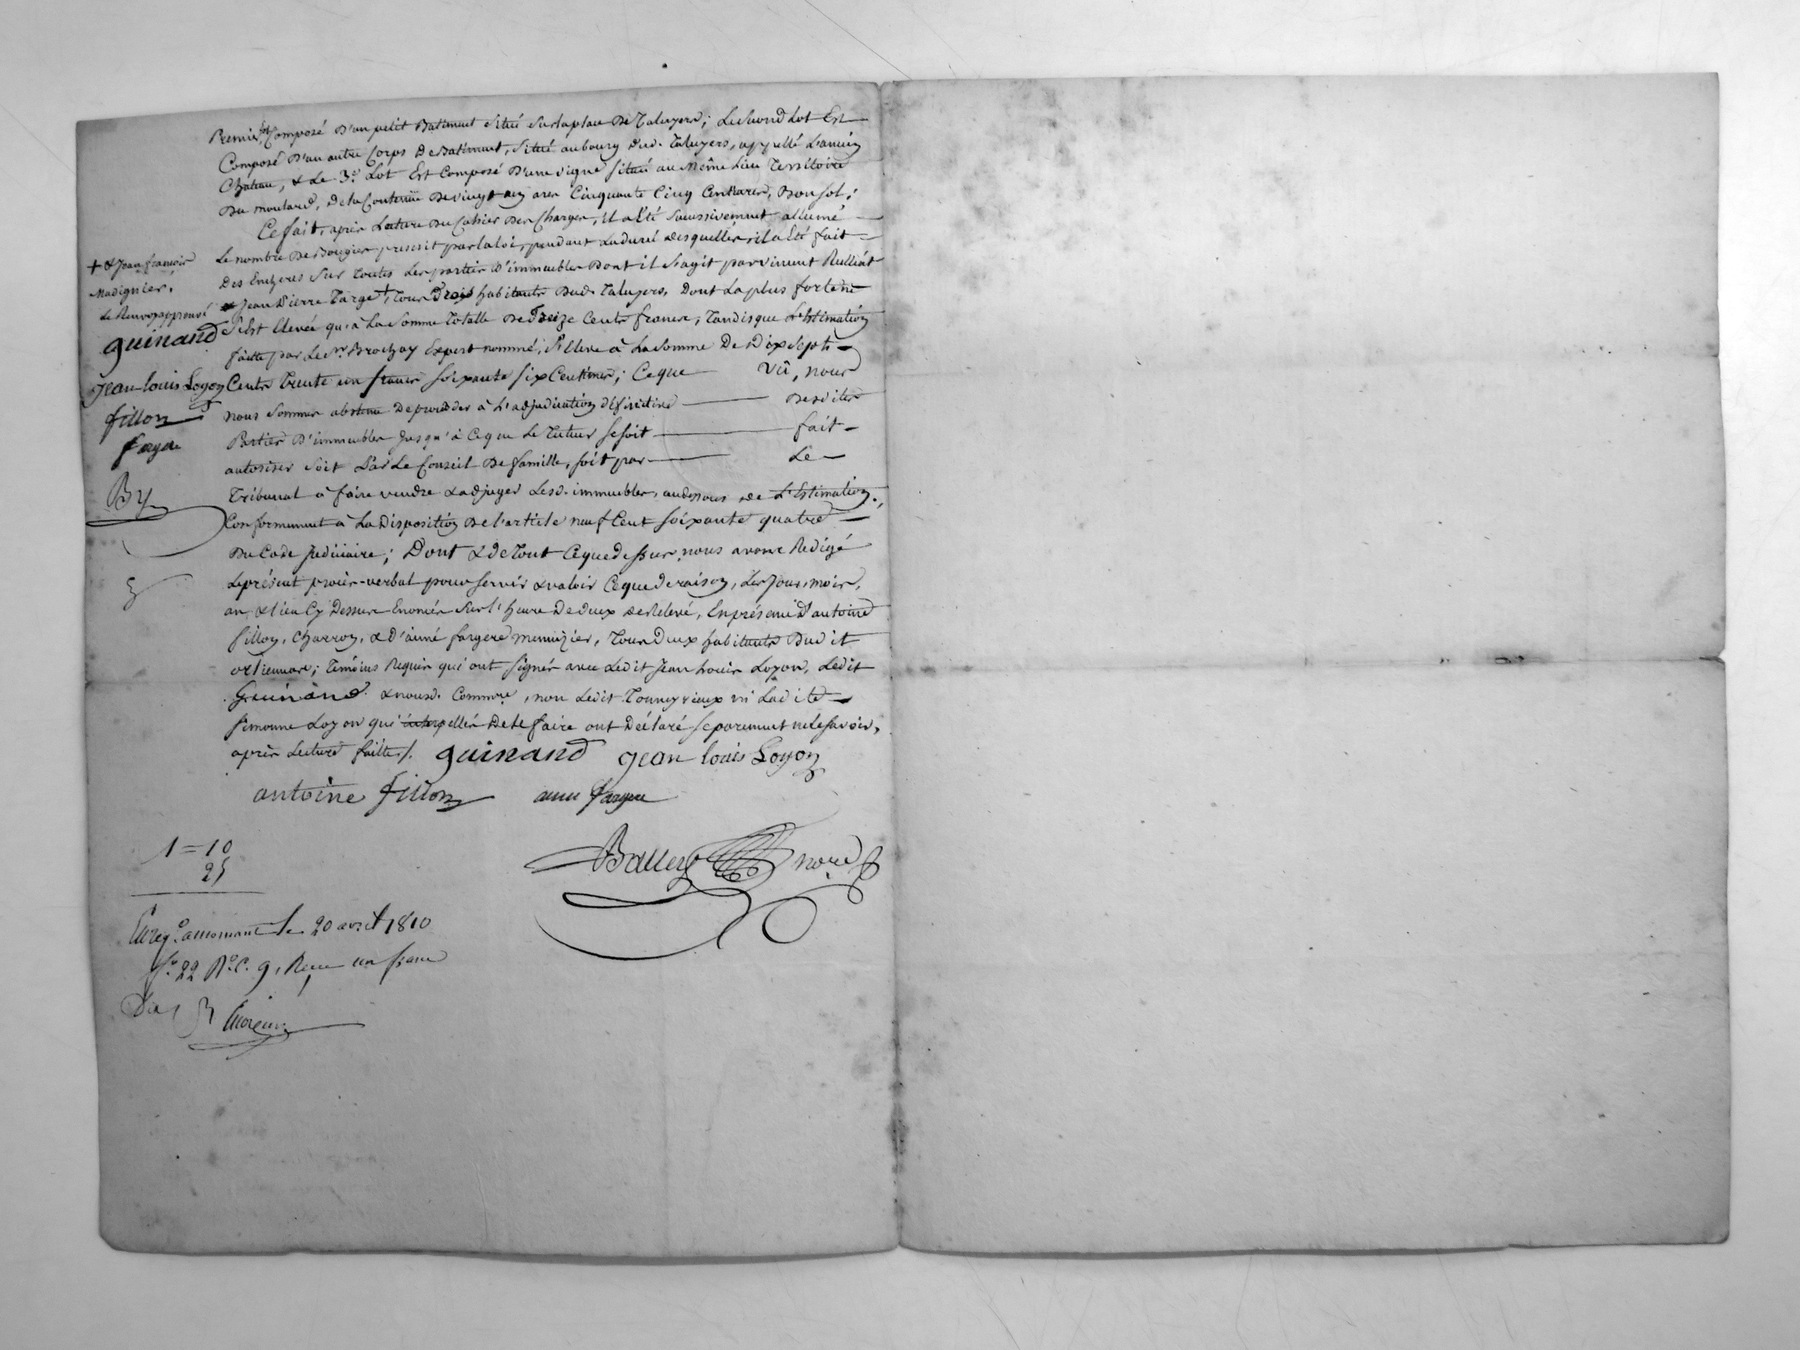 Premier Composé d'un petit Batiment situé sur la place de Taluyers; le second lot Est
Composé d'un autre Corps de Batiment, situé au bourg dud. Taluyers, appellé l'ancien
Chateau, & le 3e. lot Est Composé d'une vigne située au même lieu Territoire
du moulard, de la Contenüe de vingt ares Cinquante Cinq Centiares, Bon sol;
Ce fait, après Lecture du Cahier des Charges, il a été successivement allumé
le nombre de Bougies prescrit par la loi, pendant la durée desquelles il a Eté fait
des Encheres sur toutes les parties d'immeubles dont il s'agit par vincent Rulliat
& Jean Pierre Targe + tous trois habitants dud. Taluyers, dont la plus forte ne
s'Est Elevée qu'à la somme totalle de Treize Cents francs, tandis que l'Estimation
faitte par le sr. Brochay Expert nommé, s'Eleve à la somme de Dix sept
Cents trente un francs soixante six Centimes; Ceque vû, nous
nous sommes abstenu de proceder à l'adjudication définitive desdites
Parties d'immeubles jusqu'à Ceque le Tuteur se soit fait
autoriser soit Par le Conseil de famille, soit par Le
Tribunal à faire vendre & adjuger lesd. immeubles, audessous de l'Estimation,
Conformement à la Disposition de l'article neuf Cent soixante quatre
du Code judiciaire; Dont & de tout Ceque dessus, nous avons Redigé
le présent procès-verbal pour servir & valoir Ceque de raison, les jour, mois,
an & lieu Cy dessus Enoncés sur l'heure de deux de Relevé, En présence d'antoine
fillon, charron, & d'aimé fargere menuizier, tous deux habitants dudit
orliennas; témoins Requis qui ont signés avec ledit jean Louis Loyon, ledit
Guinand & nousd. Commre., non ledit Tonnerieux ni ladite
simonne Loyon qui interpellés de le faire ont déclaré separement ne le savoir,
après lecture faitte./. guinand jean louis Loyon
antoine fillon aimé fargere
nore
+ & Jean françois
Madignier,
le Renvoy approuvé
guinand
jean louis Loyon
fillon
fargere
1=10
25
Enreg.o amornant le 20 avril 1810
fo. 22 Ro. C. 9, Reçu un franc